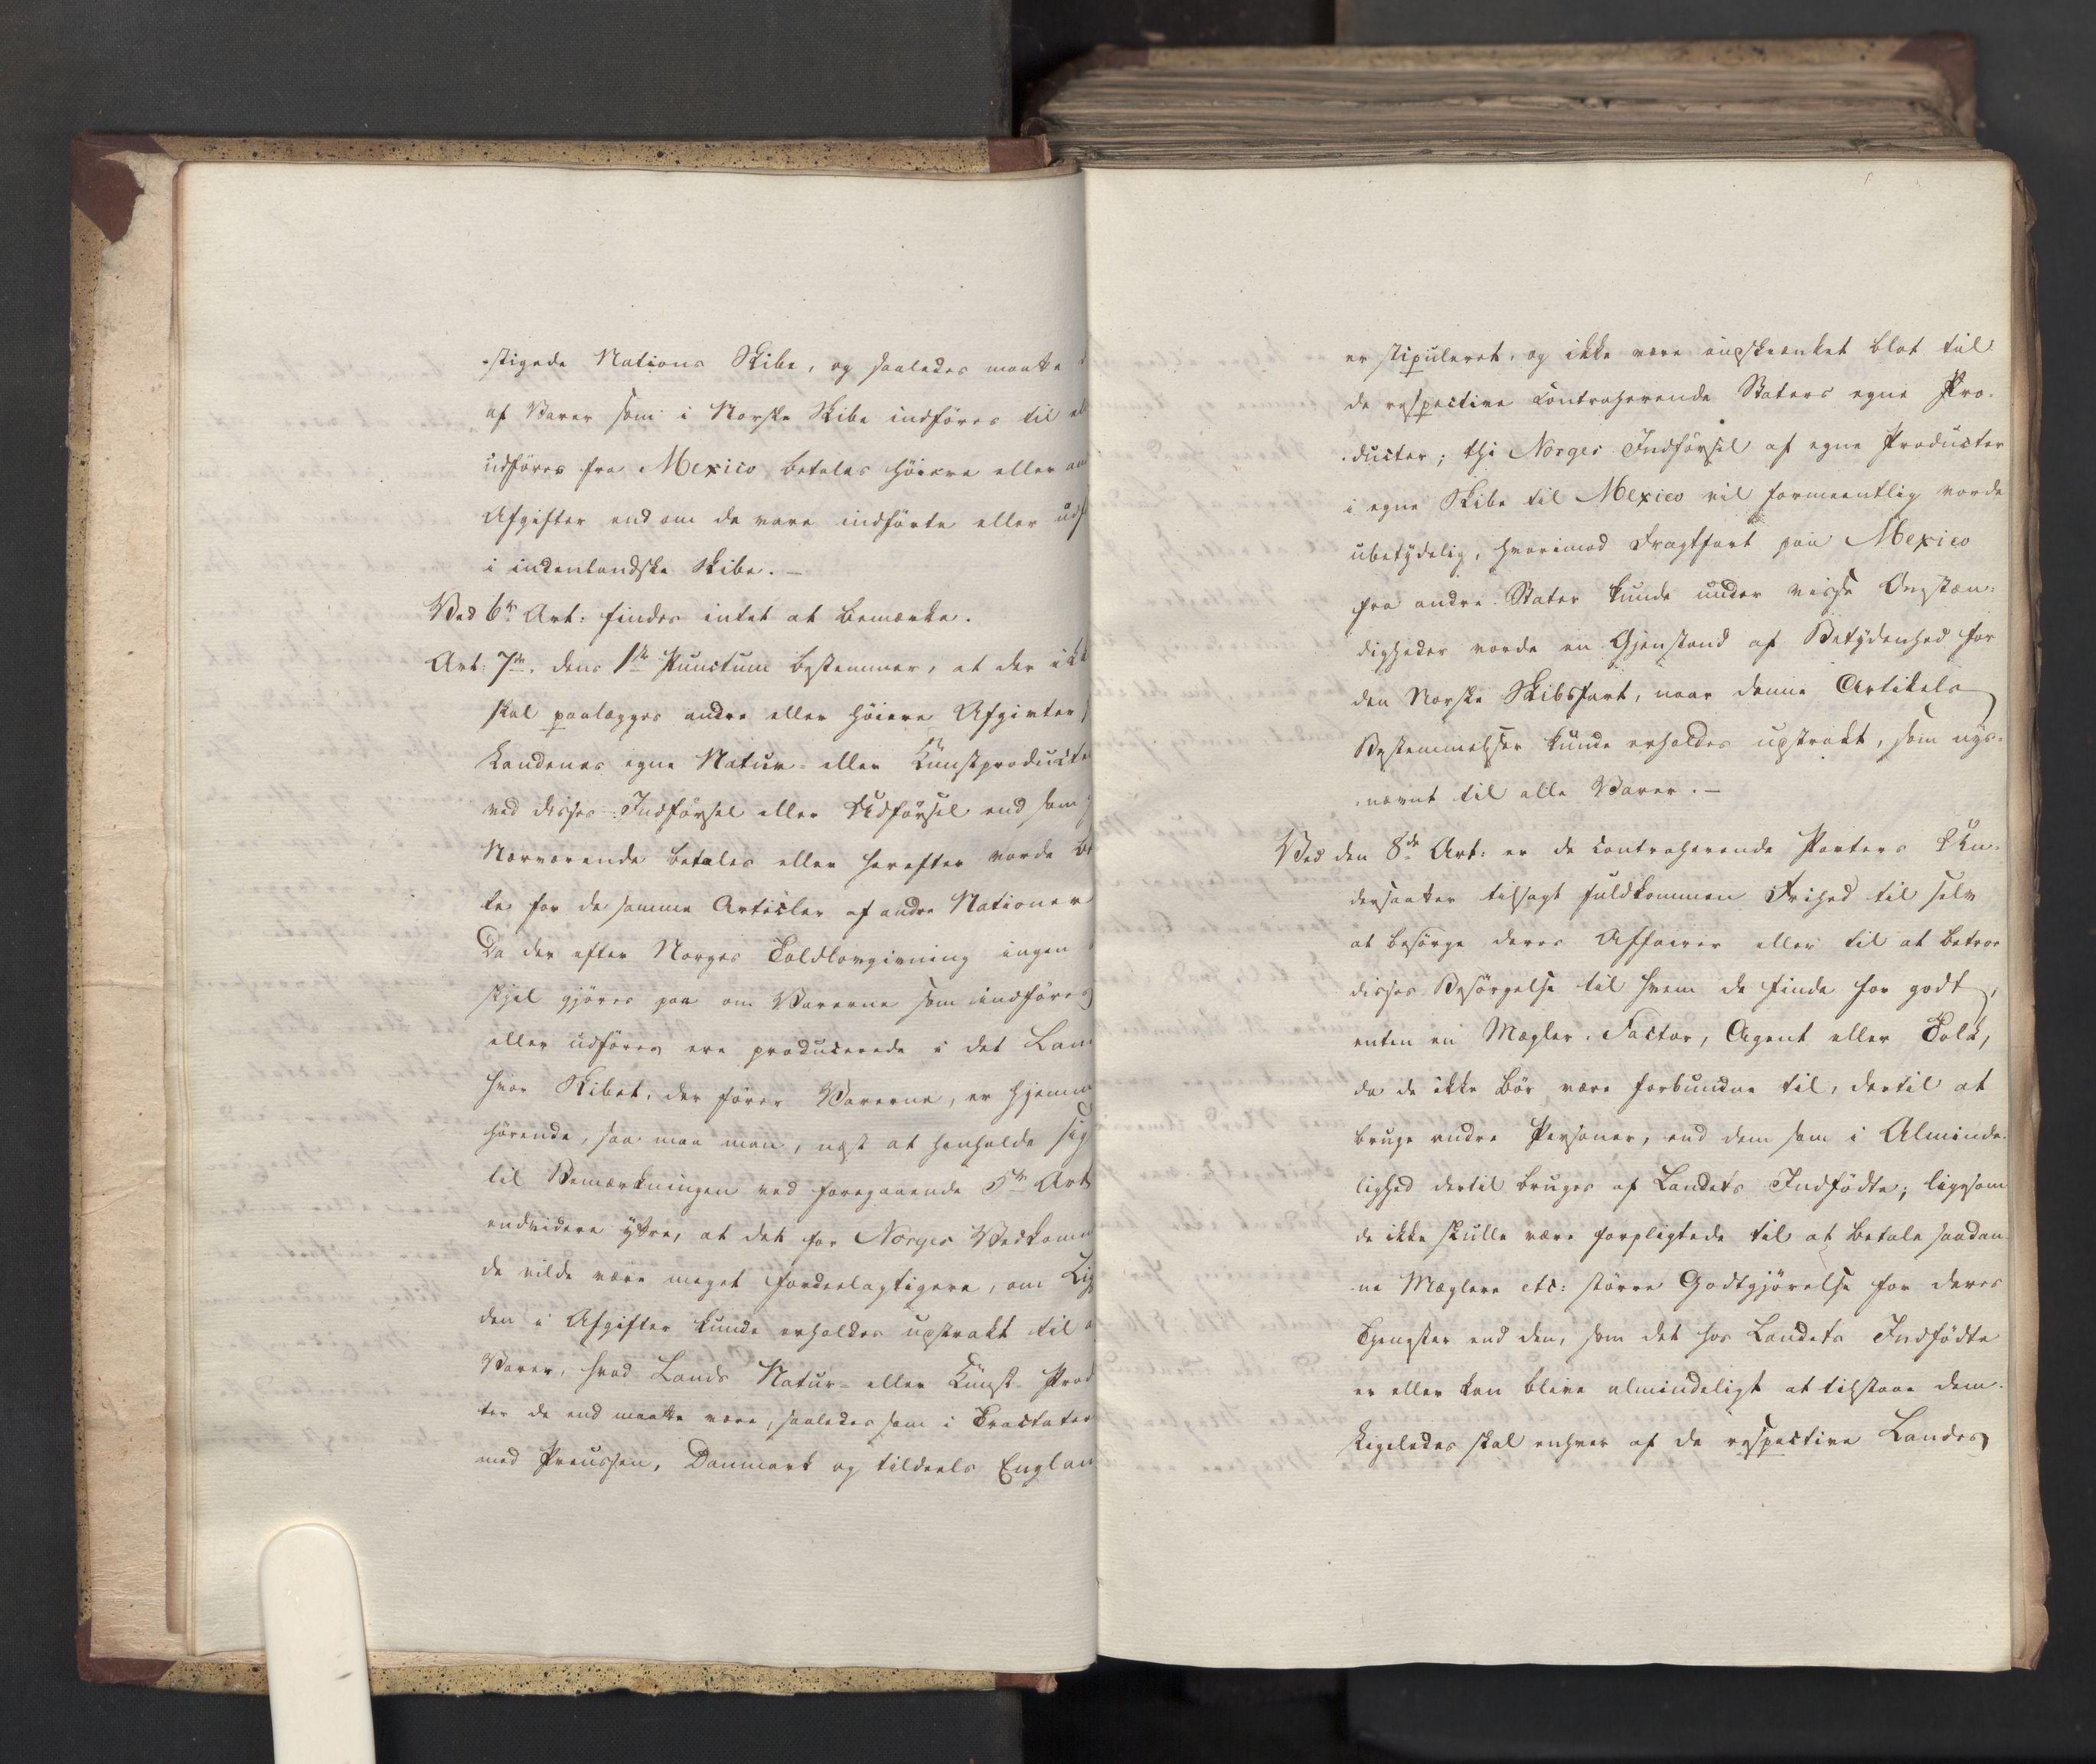 -stigede Nations Skibe, og saaledes maatte
af Varer som i Norske Skibe indføres til el
udføres fra Mexico betales høiere eller an
Afgifter end om de vare indførte eller udf
i indenlandske Skibe. —
Ved 6te Art: findes intet at bemærke.
Art: 7de. dens 1ste Punctum bestemmer, at der ikk
skal paalægges andre eller høiere Afgivter
Landenes egne Natur- eller Kunstproducte
ved disses Indførsel eller Udførsel end som
Nærværende betales eller herefter vorde be
te for de samme Articler af andre Nationer
Da der efter Norges Toldlovgivning ingen
skjel gjøres paa om Varerne som indføres
eller udføres ere producerede i det Lan
hvor Skibet, der fører Varerne, er hjemm
hørende, saa maa man, næst at henholde sig
til Bemærkningen ved foregaaende 5te Art
endvidere yttre, at det for Norges Vedkomm
de vilde være meget fordeelagtigere, om Lig
den i Afgifter kunde erholdes upstrakt til a
Varer, hvad Lands Natur- eller Kunst- Prod
ter de end maatte være, saaledes som i Tractater
med Preussen, Danmark og tildeels Englan
er stipuleret, og ikke være indskrænket blot til
de respective contraherende Staters egne Pro-
-ducter; thi Norges Indførsel af egne Producter
i egne Skibe til Mexico vil formeentlig vorde
ubetydelig, hvorimod Fragtfart paa Mexico
fra andre Stater kunde under visse Omstæn-
digheder vorde en Gjenstand af Betydenhed for
den Norske Skibsfart, naar denne Artikels
Bestemmelser kunde erholdes upstrakt, som nys-
-nævnt til alle Varer. —
Ved den 8de Art: er de contraherende Parters Un-
dersaatter tilsagt fuldkommen Frihed til selv
at besørge deres Affairer eller til at betroe
disses Besørgelse til hvem de finde for godt,
enten en Mægler, Factor, Agent eller Tolk,
da de ikke bør være forbundne til, dertil at
bruge andre Personer, end dem som i Alminde-
lighed dertil bruges af Landets Indfødte; ligesom
de ikke skulle være forpligtede til at betale saadan-
-ne Mæglere etc: større Godtgjørelse for deres
Tjenester end den, som det hos Landets Indfødte
er eller kan blive almindeligt at tilstaae dem.
Ligeledes skal enhver af de respective Landes